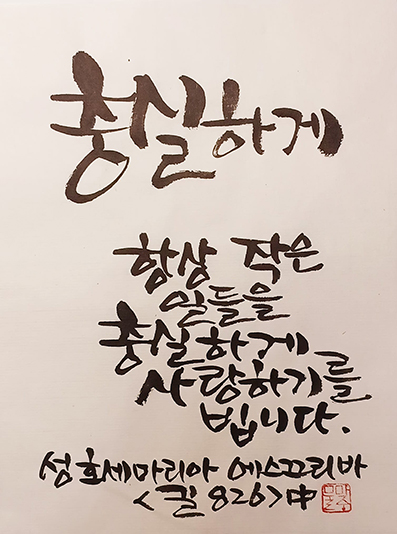 충실하게
항상 작은
일들을
충실하게
사랑하기를
빕니다.
성 호세마리아 에스끄리바
<길 826>中